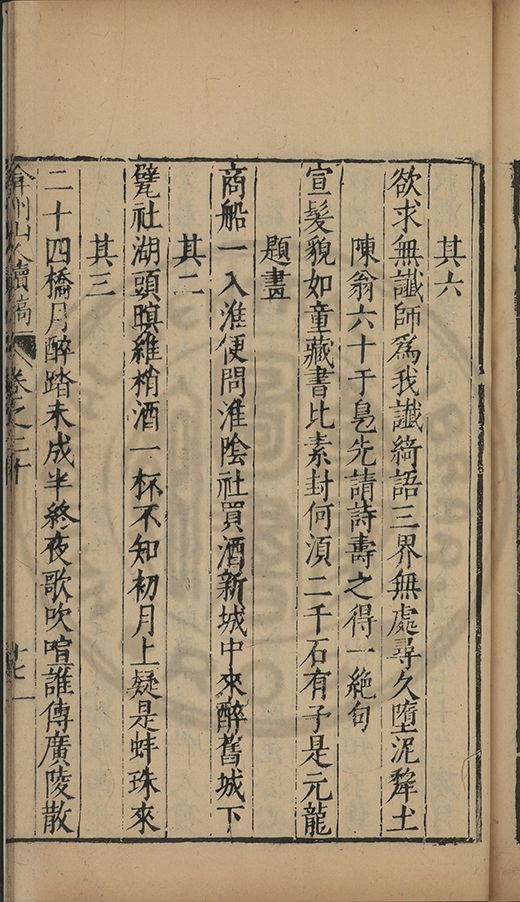 其六
欲求無讖師爲我讖綺語三界無處尋久墮泥犂土
陳翁六十于皃先請詩壽之得一絶句
宣髮貌如童藏書比素封何湏二千石有子是元龍
題畫
商船一入淮便問淮陰社買酒新城中來醉舊城下
其二
甓社湖頭暝維梢酒一杯不知初月上疑是蚌珠來
其三
二十四橋月醉踏未成半終夜歌吹喧誰傳廣陵散
弇州山人續稿 卷之二十 十七